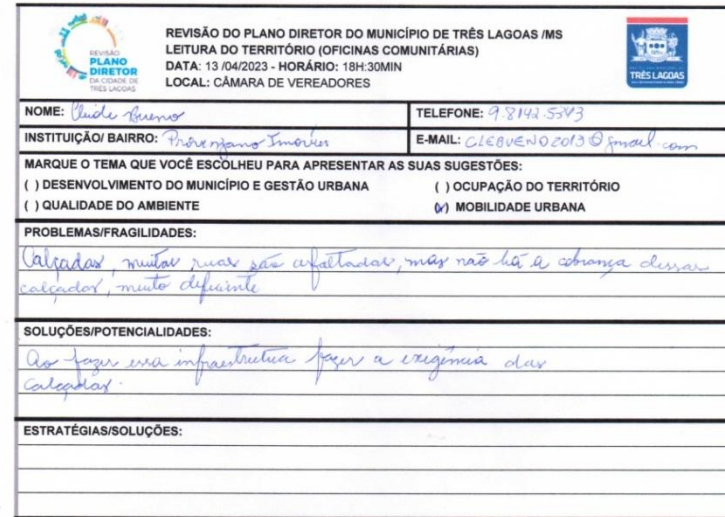 REVISÃO
PLANO
DIRETOR
DA CIDADE DE
TRÊS LAGOAS
REVISÃO DO PLANO DIRETOR DO MUNICÍPIO DE TRÊS LAGOAS /MS
LEITURA DO TERRITÓRIO (OFICINAS COMUNITÁRIAS)
DATA: 13 /04/2023 - HORÁRIO: 18H:30MIN
LOCAL: CÂMARA DE VEREADORES
TRÊS LAGOAS
NOME: Cleide Bueno
TELEFONE: 9.8142.5343
INSTITUIÇÃO/ BAIRRO: Provenzano Imóveis
E-MAIL: CLEBUENO2013@gmail.com
MARQUE O TEMA QUE VOCÊ ESCOLHEU PARA APRESENTAR AS SUAS SUGESTÕES:
( ) DESENVOLVIMENTO DO MUNICÍPIO E GESTÃO URBANA
( ) OCUPAÇÃO DO TERRITÓRIO
( ) QUALIDADE DO AMBIENTE
(x) MOBILIDADE URBANA
PROBLEMAS/FRAGILIDADES:
Calçadas, muitas ruas são asfaltadas, mas não há a cobrança dessas
calçadas, muito deficiente
SOLUÇÕES/POTENCIALIDADES:
Ao fazer essa infraestrutura fazer a exigência das
calçadas.
ESTRATÉGIAS/SOLUÇÕES: